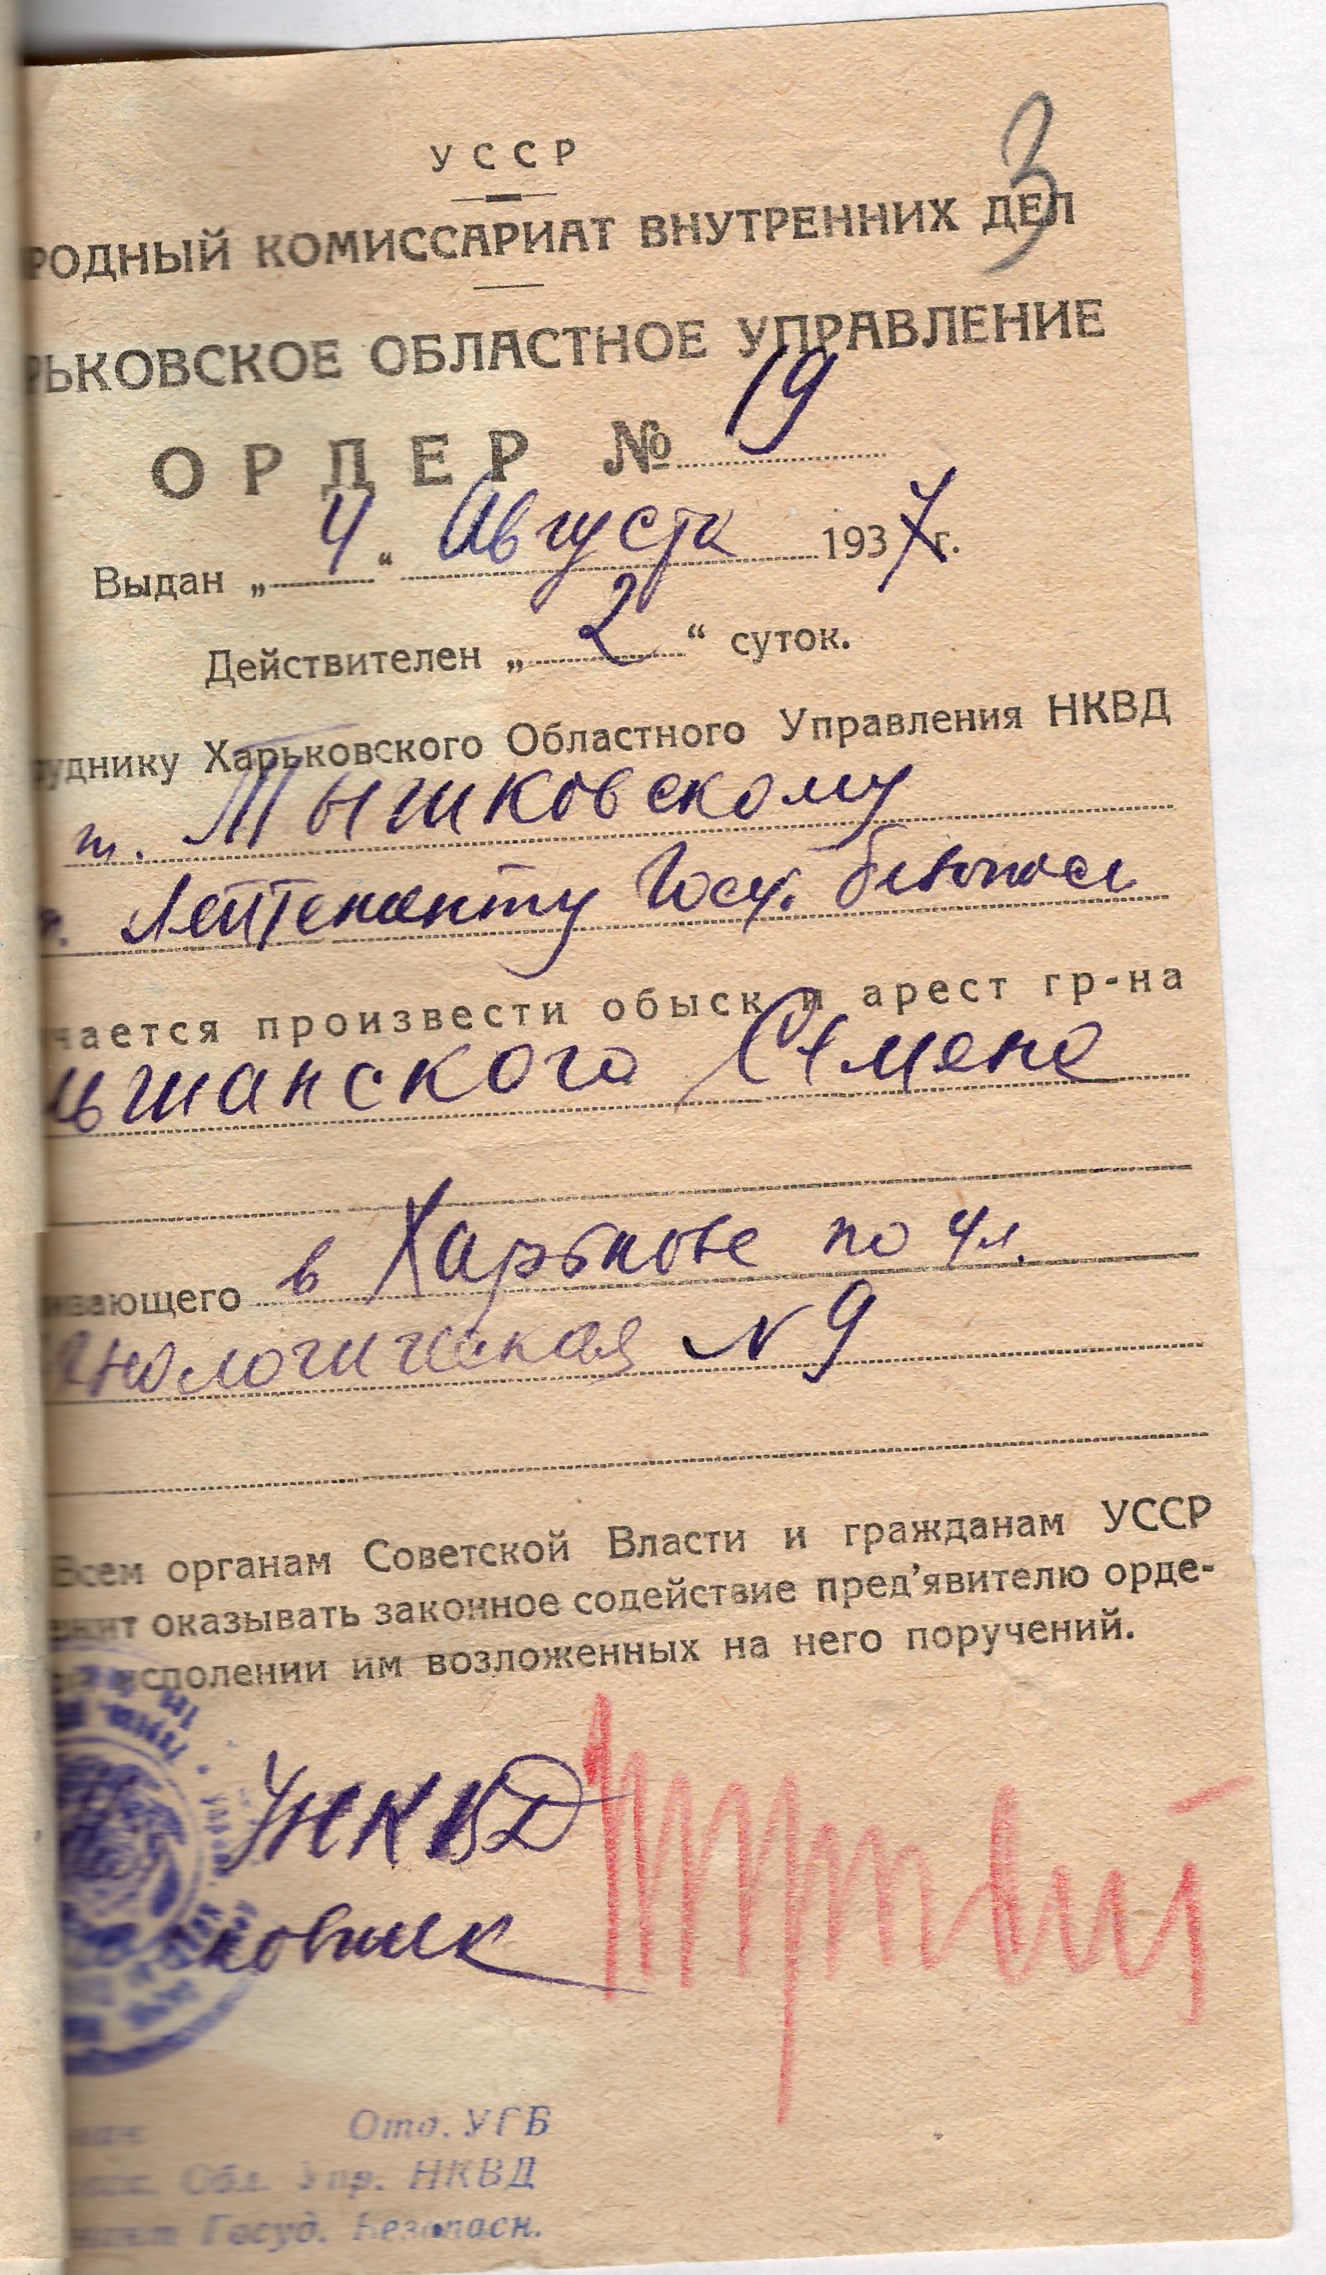 3
УССР
РОДНЫЙ КОМИССАРИАТ ВНУТРЕННИХ ДЕЛ
РЬКОВСКОЕ ОБЛАСТНОЕ УПРАВЛЕНИЕ
ОРДЕР № 19
Выдан „ 4 “ Августа 1937 г.
Действителен „ 2 “ суток.
уднику Харьковского Областного Управления НКВД
т. Тышковскому
Лейтенанту Госу.
чается произвести обыск и арест гр-на
льшанского Семена
ивающего в Харькове по ул.
хнологическая № 9
Всем органам Советской Власти и гражданам УССР
ежит оказывать законное содействие пред’явителю орде-
исполении им возложенных на него поручений.
УНКВД
Отд. УГБ
Обл. Упр. НКВД
Госуд. Безопасн.